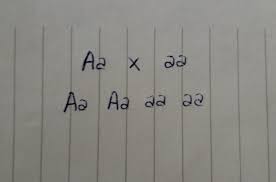 Aa x aa
Aa Aa aa aa